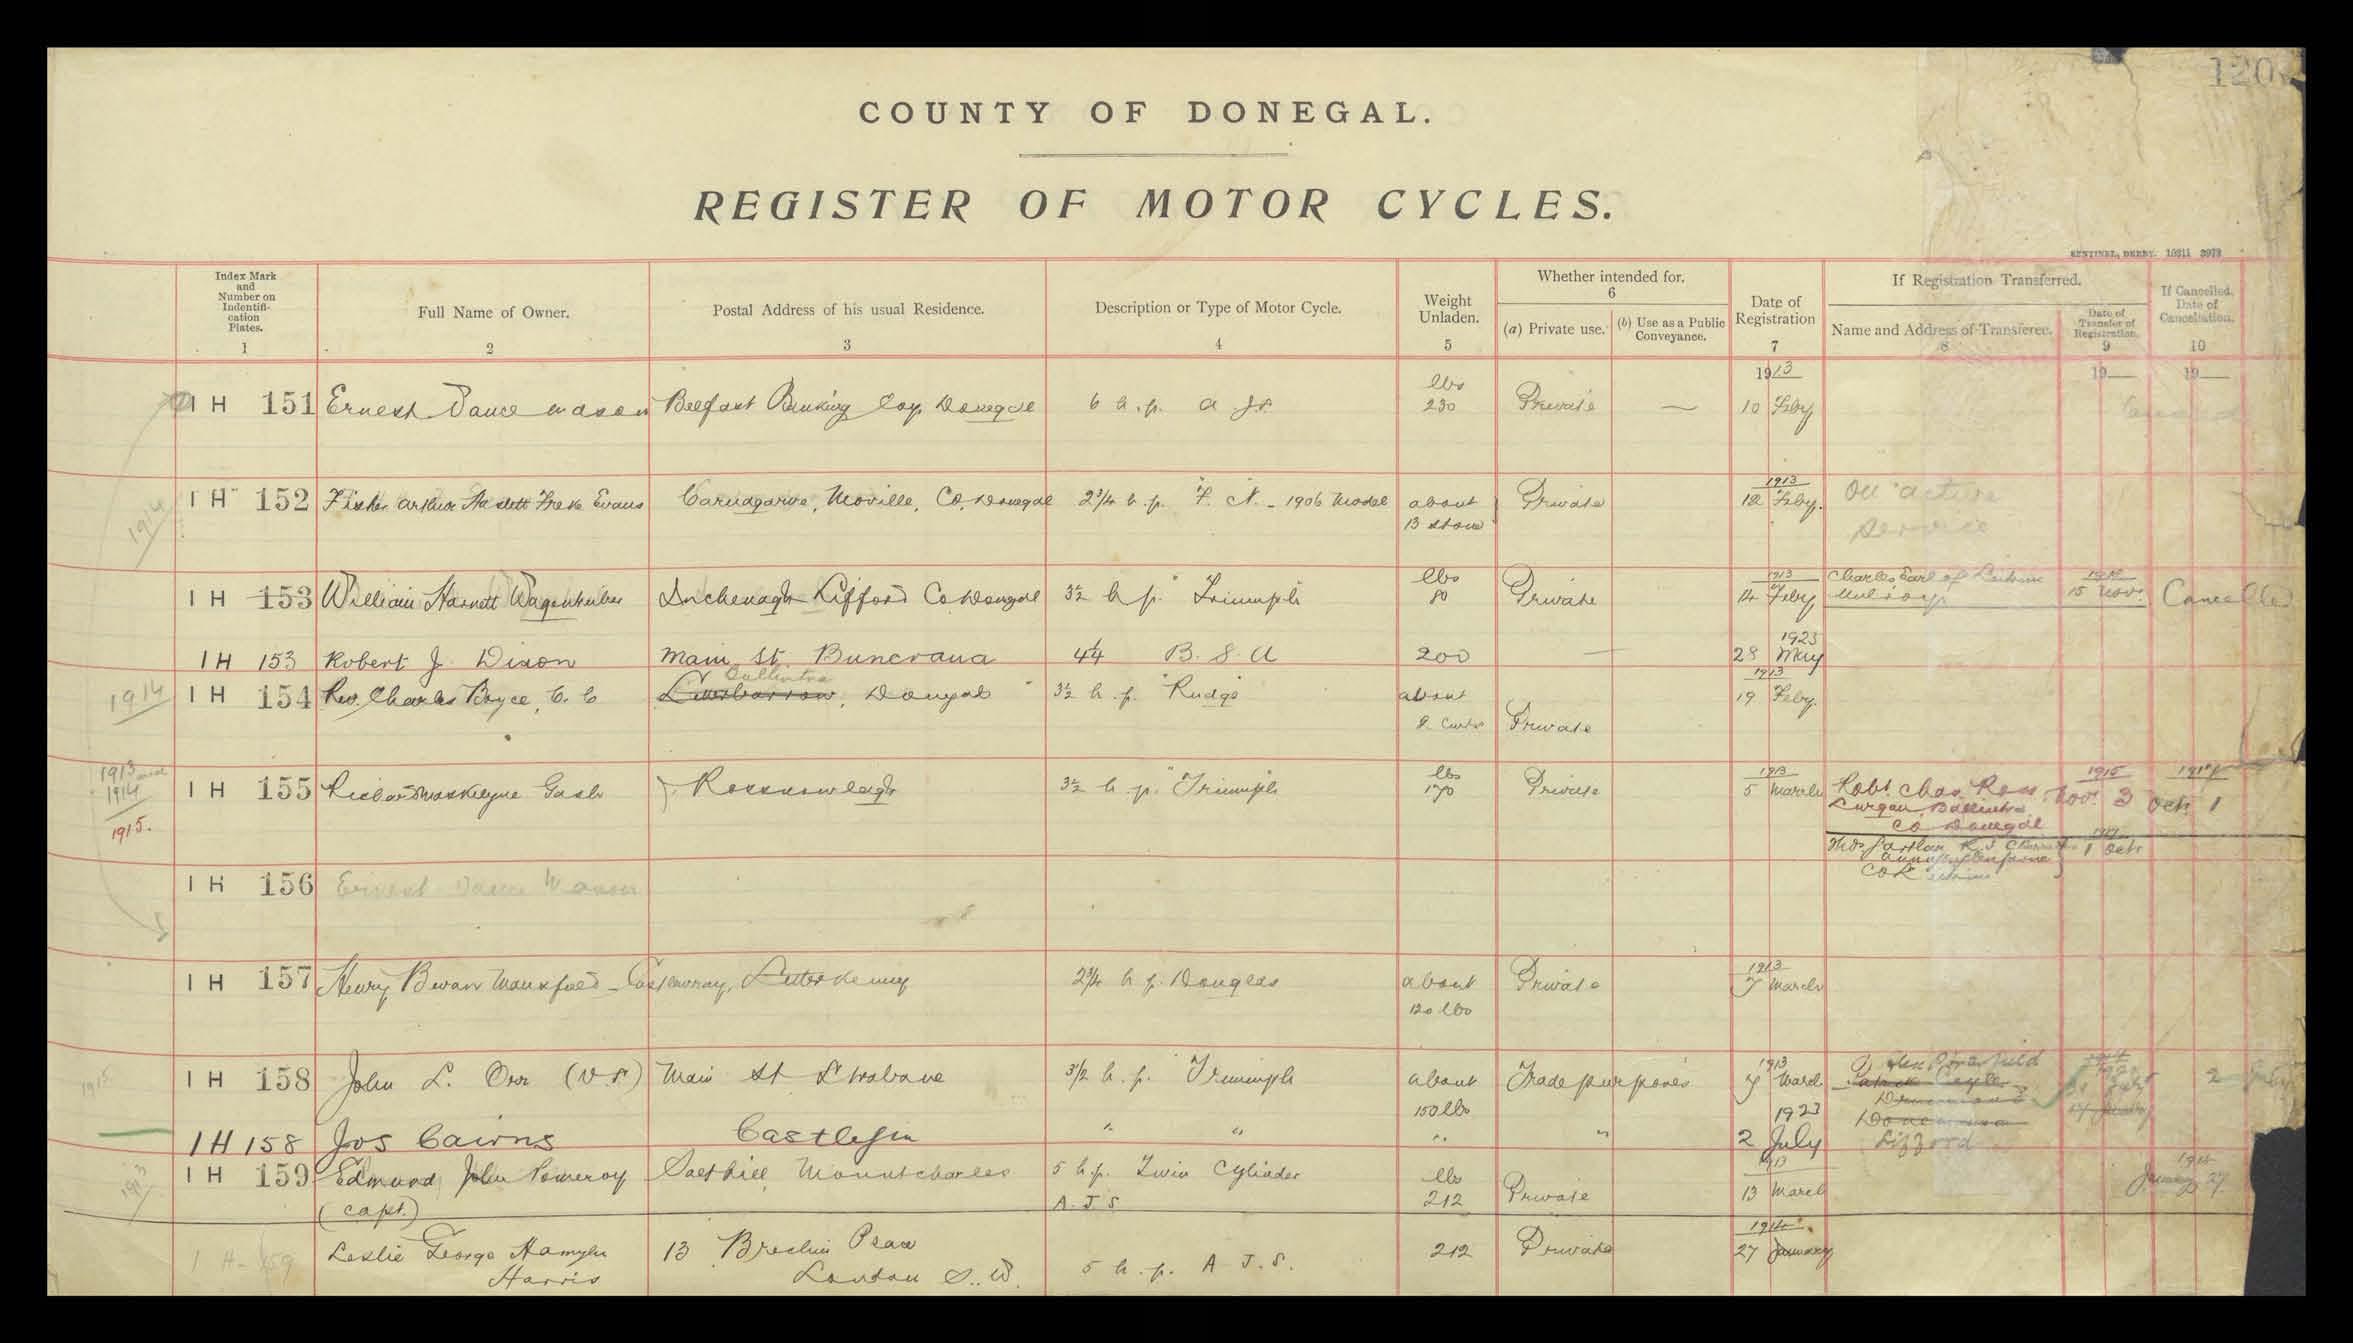 120
COUNTY OF DONEGAL.
REGISTER OF MOTOR CYCLES.
SENTINEL, DERRY. 10211 3973
Index Mark and Number on Indentifi- cation Plates. 1
Full Name of Owner. 2
Postal Address of his usual Residence. 3
Description or Type of Motor Cycle. 4
Weight Unladen. 5
Whether intended for. 6
(a) Private use. (b) Use as a Public Conveyance.
Date of Registration 7
If Registration Transferred.
Name and Address of Transferee. 8
Date of Transfer of Registration. 9
If Cancelled, Date of Cancellation. 10
1913 19 19
IH 151 Ernest Vance Mason Belfast Banking Coy. Donegal 6 h.p. A JS lbs 230 Private — 10 Feby
1914
IH 152 Fisher Arthur Freke Evans Carnagarve, Moville, Co. Donegal 2 3/4 h.p. "F. N. - 1906 Model about 13 stone Private 1913 12 Feby. On active service
IH 153 William Harnett Wagentreiber Inchenagh Lifford Co Donegal 3½ h.p. "Triumph lbs 80 Private 1913 14 Feby Charles Earl of Leitrim Mulroy 15 Nov. Cancelled
IH 153 Robert J. Dixon Main St. Buncrana 4¼ B.S.A 200 — 1923 28 May
1914
Ballintra
IH 154 Rev. Charles Boyce, C.C Letterbarrow, Donegal 3½ h.p. "Rudge about 2 cwts Private 1913 19 Feby.
1913 and 1914
1915.
IH 155 Richard Maskelyne Gash Rossnowlagh 3½ h.p. "Triumph lbs 170 Private 1913 5 March Robt. Chas. Ross 1915 Nov. 3 1917 Oct. 1
Lurgan, Ballintra
Co Donegal
Thos. 1 Octr
Co Leitrim
IH 156 Ernest Vance Mason
IH 157 Henry Bevan Mansfield - Castlewray, Letterkenny 2 3/4 h.p. Douglas about 120 lbs Private 1913 7 March
1915
IH 158 John L. Orr (V.S.) Main St Strabane 3½ h.p. "Triumph about 150 lbs Trade purposes 1913 7 March 2 July
Lifford
IH 158 Jos Cairns Castlefin " " " " 1923 2 July
1913
IH 159 Edmund John Pomeroy (Capt.) Salthill Mountcharles 5 h.p. Twin Cylinder A.J.S lbs 212 Private 1913 13 March 1914 January 27
IH 159 Leslie George Harris 13 Brechin Place London S.W. 5 h.p. A.J.S. 212 Private 1914 27 January